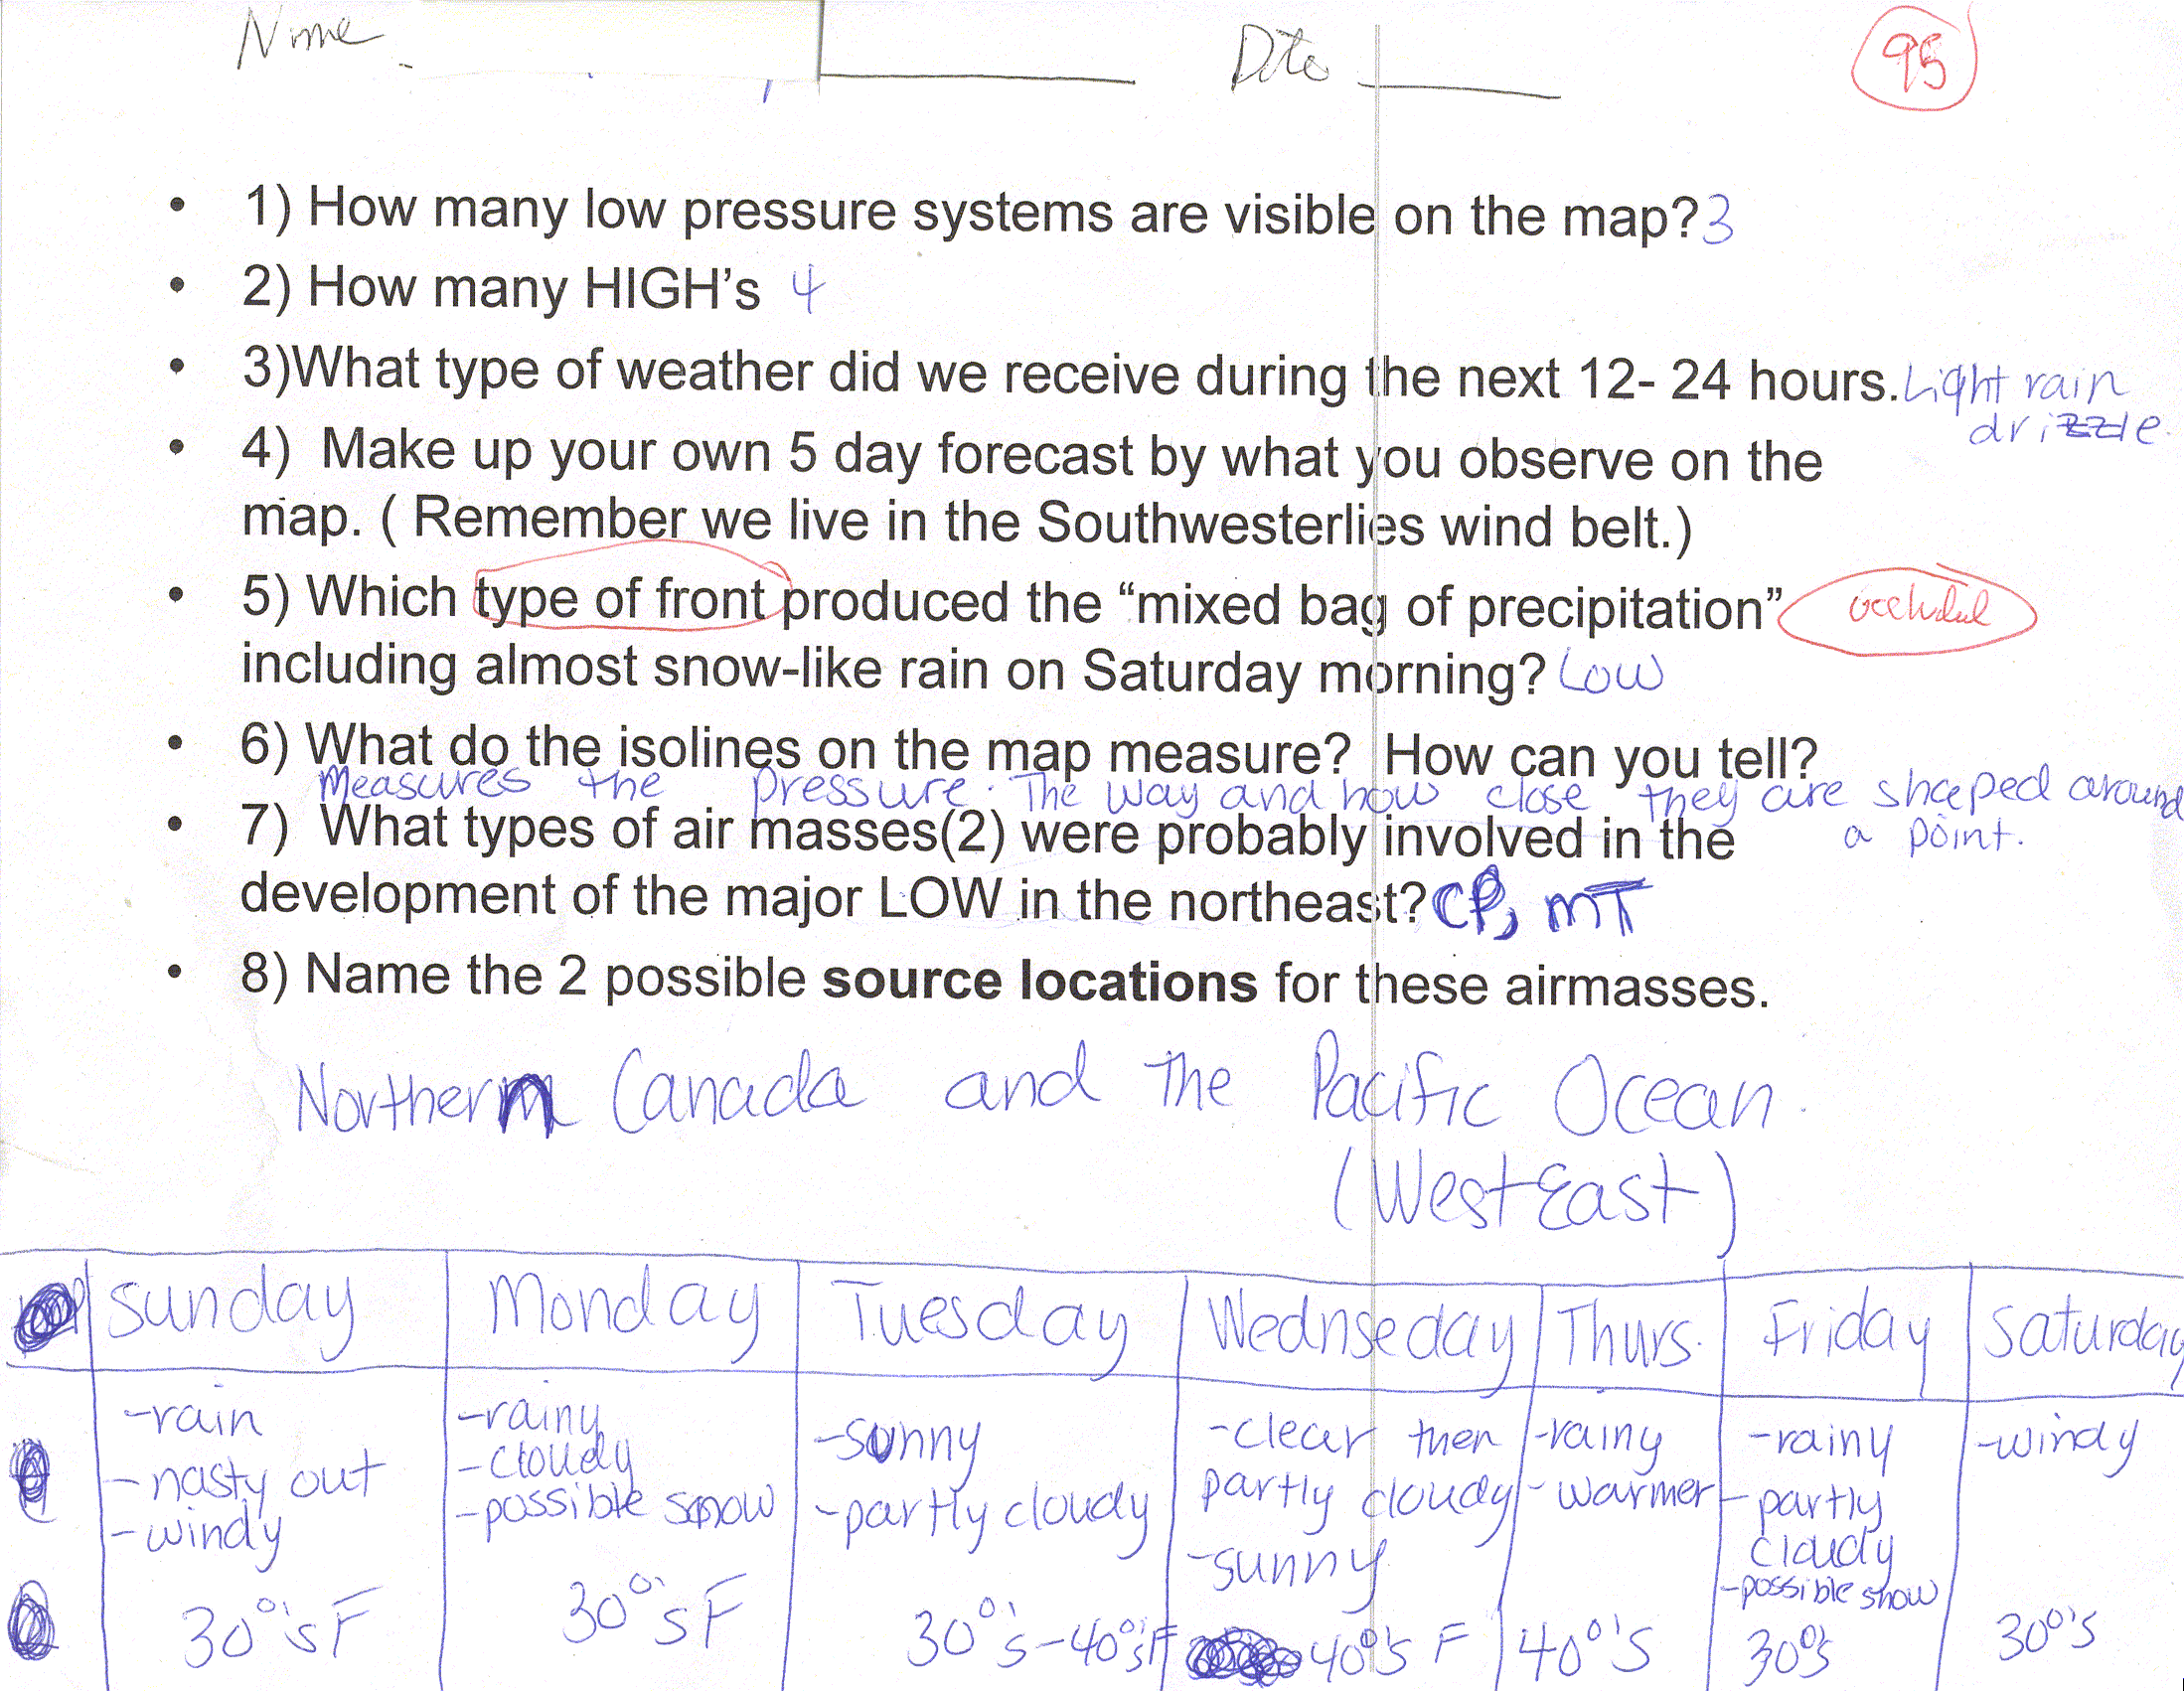 Name
Date
95
• 1) How many low pressure systems are visible on the map? 3
• 2) How many HIGH's 4
• 3)What type of weather did we receive during the next 12- 24 hours. Light rain
drizzle.
• 4) Make up your own 5 day forecast by what you observe on the
map. ( Remember we live in the Southwesterlies wind belt.)
• 5) Which type of front produced the “mixed bag of precipitation” occluded
including almost snow-like rain on Saturday morning? Low
• 6) What do the isolines on the map measure? How can you tell?
Measures the pressure. The way and how close they are shaped around
a point.
• 7) What types of air masses(2) were probably involved in the
development of the major LOW in the northeast? cP, mT
• 8) Name the 2 possible source locations for these airmasses.
Northern Canada and the Pacific Ocean.
(West East)
Sunday
-rain
-nasty out
-windy
30°'s F
Monday
-rainy
-cloudy
-possible snow
30°'s F
Tuesday
-sunny
-partly cloudy
30°'s-40°'s F
Wednseday
-clear then
partly cloudy
-sunny
40°'s F
Thurs.
-rainy
-warmer
40°'s
Friday
-rainy
-partly
cloudy
-possible snow
30°'s
Saturday
-windy
30°'s